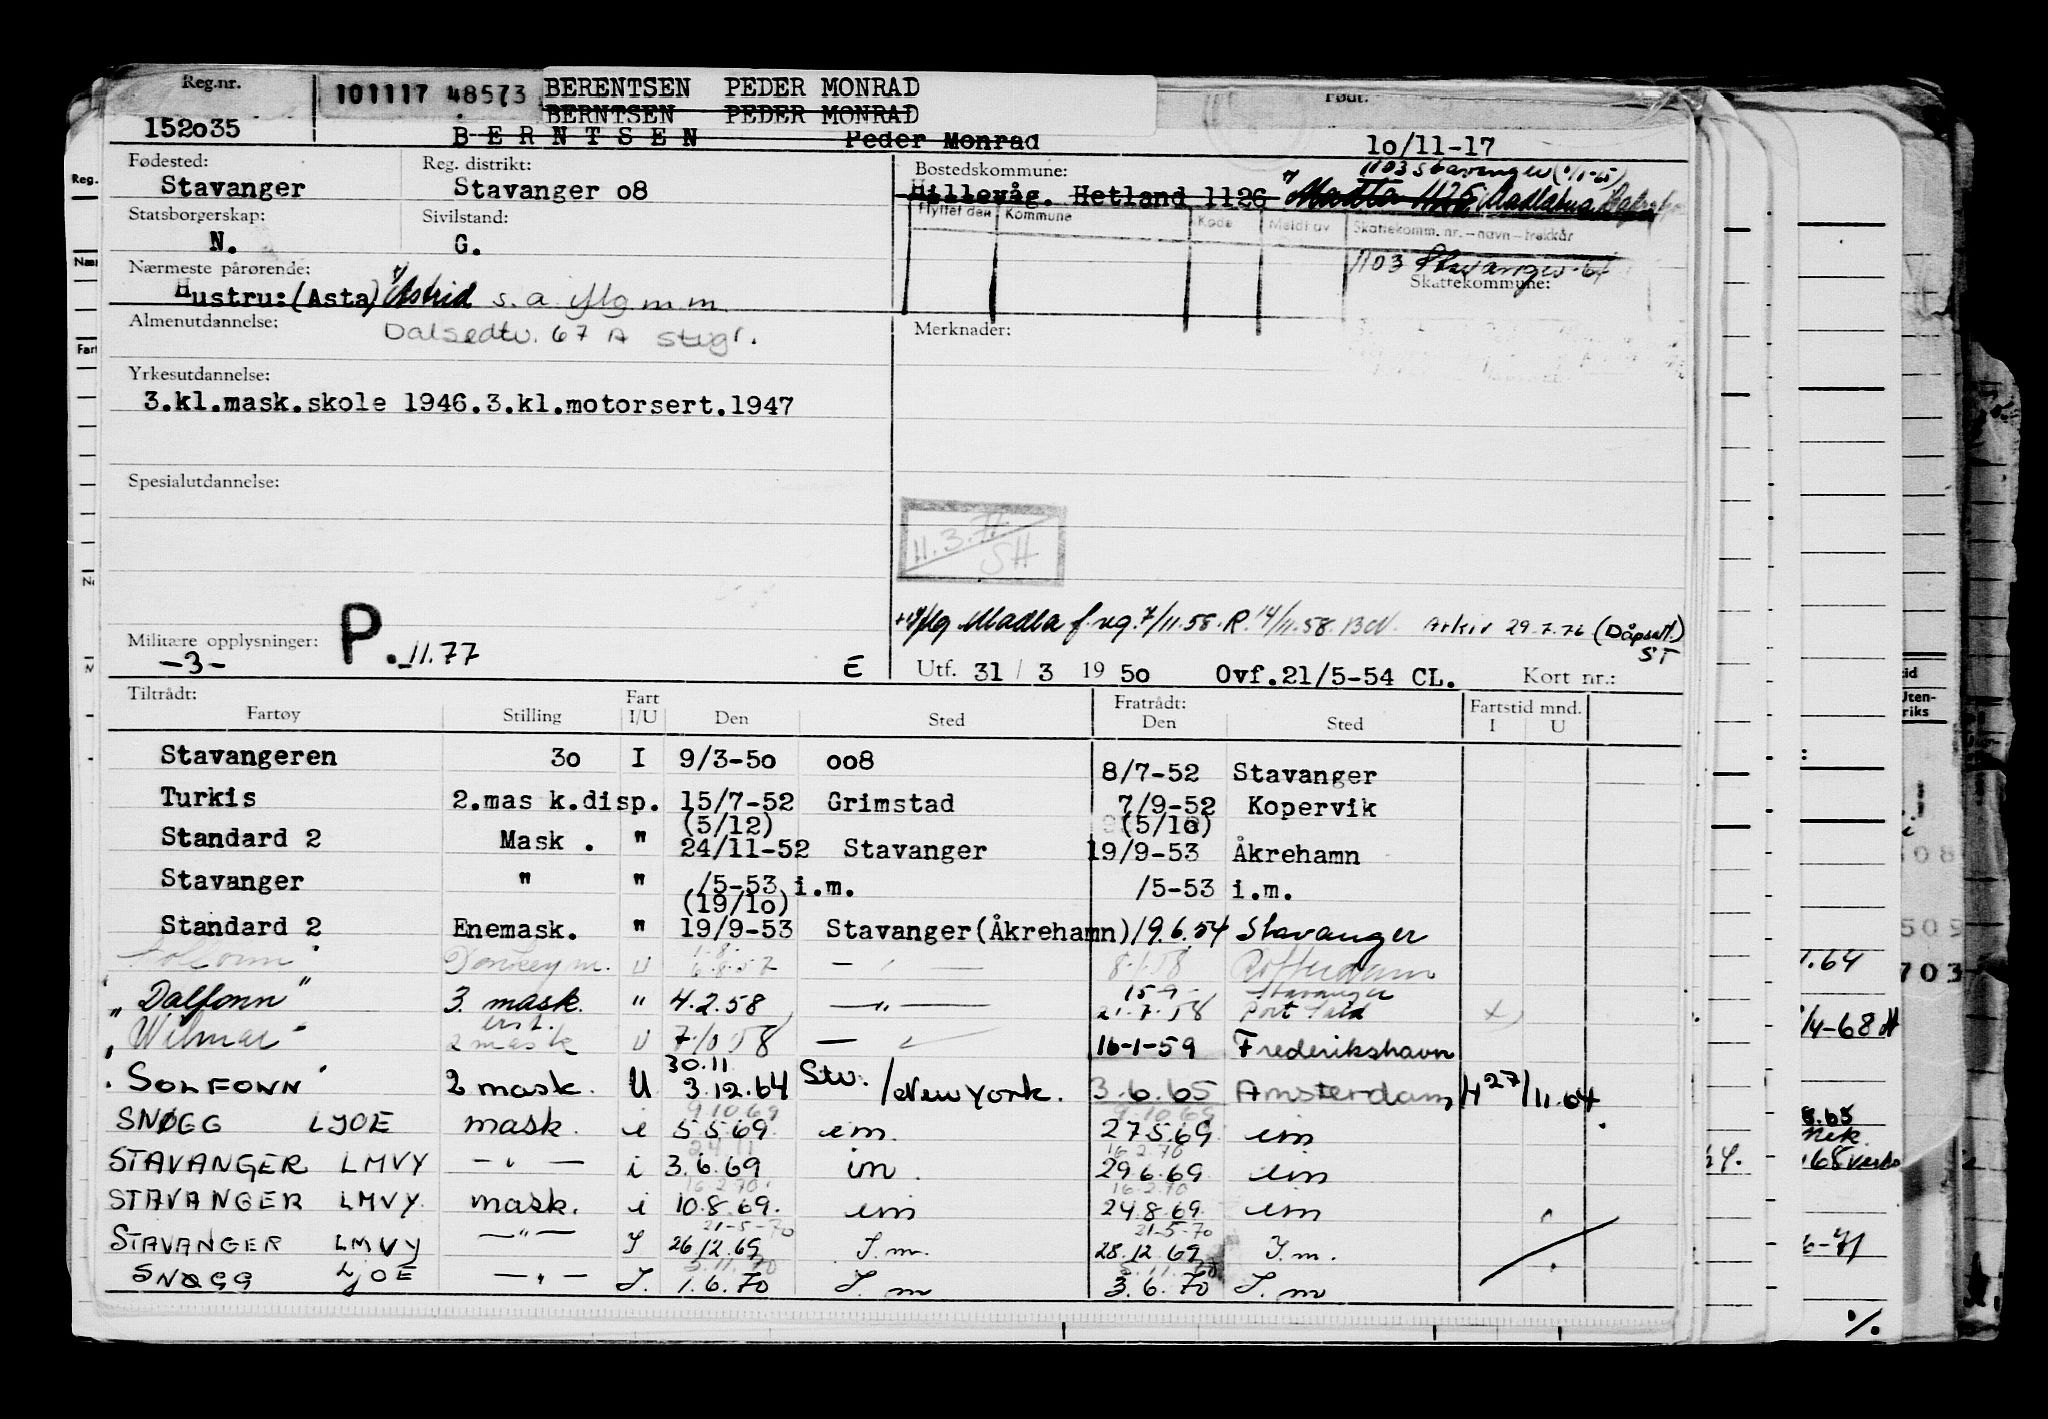 Reg.nr. 101117 48573 BERENTSEN PEDER MONRAD
BERNTSEN PEDER MONRAD
Født:
152o35 BERNTSEN Peder Monrad 1o/11-17
Fødested: Reg. distrikt: Bostedskommune: 1103 Stavanger
Stavanger Stavanger o8 Hillevåg. Hetland 1126 Madla
Statsborgerskap: Sivilstand: Flyttet den Kommune Kode Meldt av Skattekomm. nr.-navn-trekkår
N. G.
Nærmeste pårørende: 1103 Stavanger-64
Hustru:(Asta) Astrid s.a. iflg m.m. Skattekommune:
Almenutdannelse: Dalsedtv. 67 A Stvgr. Merknader:
Yrkesutdannelse:
3.kl.mask.skole 1946.3.kl.motorsert.1947
Spesialutdannelse:
11.3.71
SH
iflg Madla f. 7/11.58. R. 14/11-58. Arkiv 29.7.76 (Dåpsatt.)
ST
Militære opplysninger: P. 11.77
-3- E Utf. 31 / 3 19 50 Ovf.21/5-54 CL. Kort nr.:
Tiltrådt: Fart Fratrådt: Fartstid mnd.
Fartøy Stilling I/U Den Sted Den Sted I U
Stavangeren 3o I 9/3-5o oo8 8/7-52 Stavanger
Turkis 2.mas k.disp. 15/7-52 Grimstad 7/9-52 Kopervik
(5/12) (5/1o)
Standard 2 Mask . " 24/11-52 Stavanger 19/9-53 Åkrehamn
Stavanger " " /5-53 i.m. /5-53 i.m.
(19/1o)
Standard 2 Enemask. " 19/9-53 Stavanger(Åkrehamn) 19.6.54 Stavanger
Solfonn Donkeym. U 6.8.57 — " — 8.1.58 Rotterdam
15-9- Stavanger
"Dalfonn" 3. mask. " 4.2.58 — " — 21.7.58 Port Said
"Wilmar" 2 mask U 7.10.58 — " — 16-1-59 Frederikshavn
30.11
"SOLFONN" 2 mask. U 3.12.64 Stv./New York. 3.6.65 Amsterdam H 27/11.64
9.10.69 9.10.69
SNØGG LJOE mask. i 5.5.69 im. 27.5.69 im
24.11 16.2.70
STAVANGER LMVY — " — i 3.6.69 im. 29.6.69 im
16.2.70 16.2.70
STAVANGER LMVY. mask. i 10.8.69. im 24.8.69. im
21-5-70 21-5-70
STAVANGER LMVY — " — I 26/12.69 I.m. 28.12.69 I.m.
5.11.70 5.11.70
SNØGG LJOE — " — I. 1.6.70 I.m 3.6.70 I.m